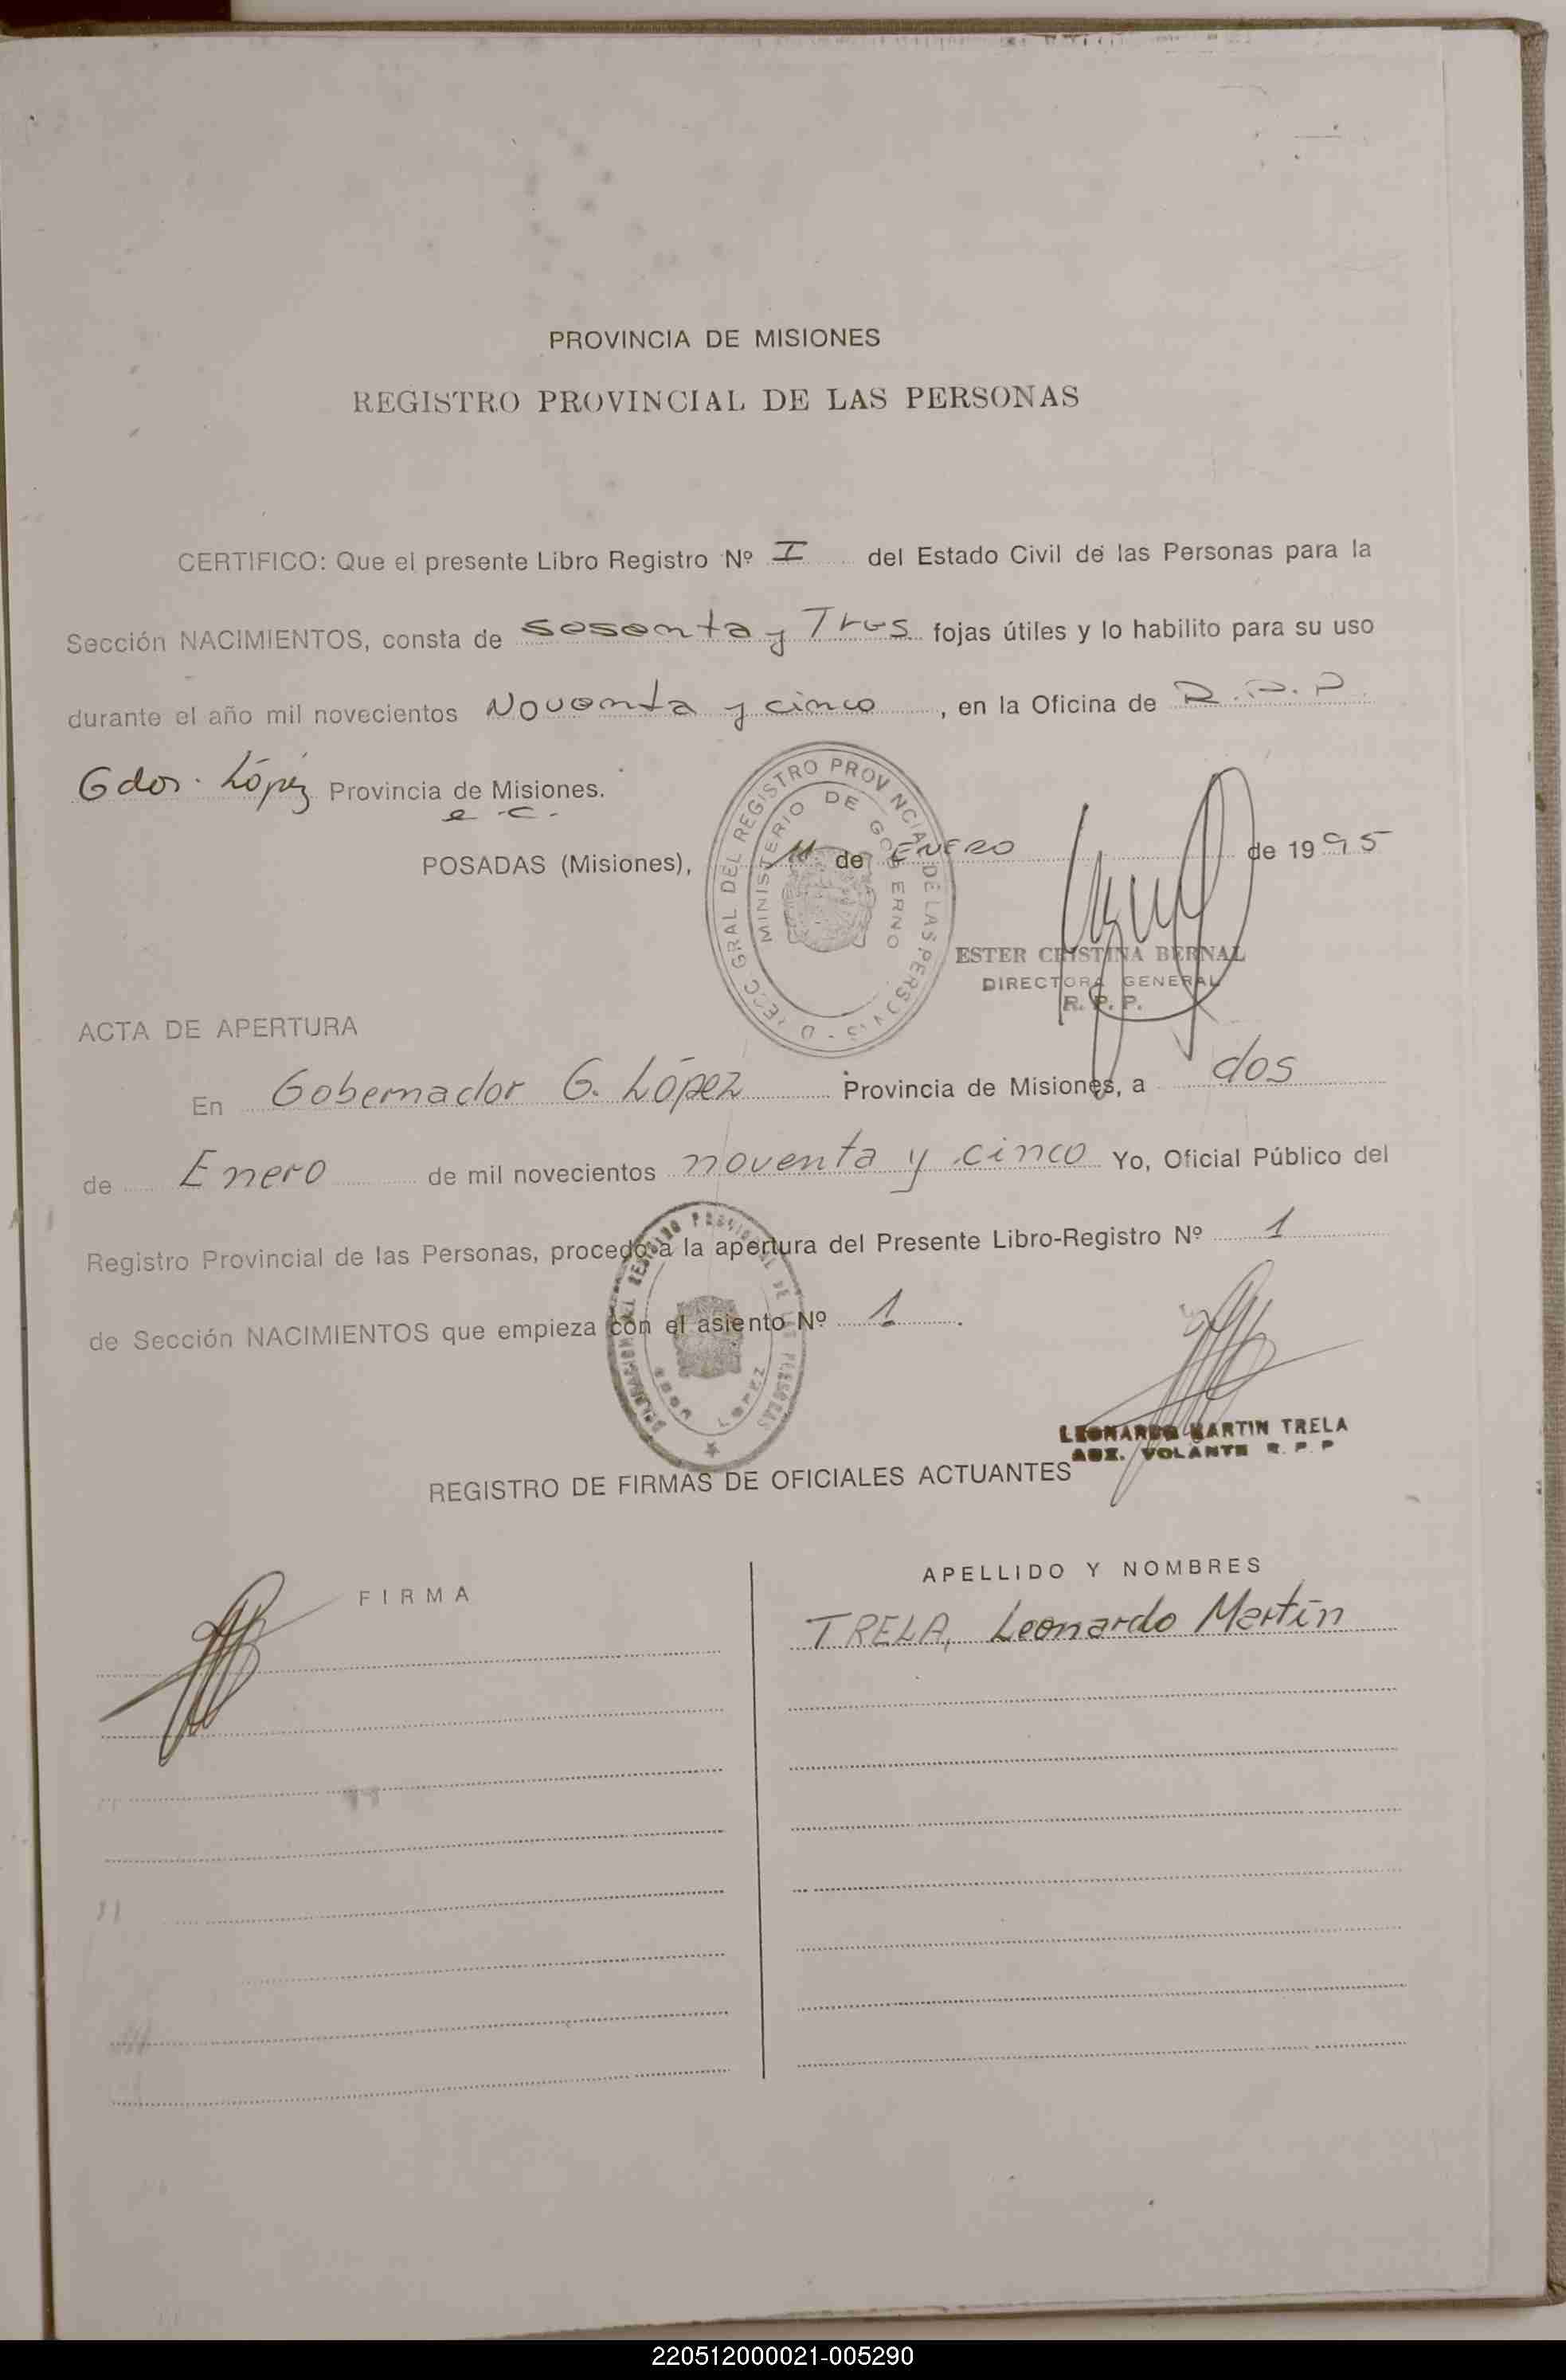 PROVINCIA DE MISIONES
REGISTRO PROVINCIAL DE LAS PERSONAS
CERTIFICO: Que el presente Libro Registro Nº I del Estado Civil de las Personas para la
Sección NACIMIENTOS, consta de sesenta y Tres fojas útiles y lo habilito para su uso
durante el año mil novecientos Noventa y cinco, en la Oficina de R.P.P.
Gdor. López Provincia de Misiones.
e.c.
POSADAS (Misiones), 11 de ENERO de 1995
DIREC. GRAL DEL REGISTRO PROVINCIAL DE LAS PERSONAS
MINISTERIO DE GOBIERNO
ESTER CRISTINA BERNAL
DIRECTORA GENERAL
R. P. P.
ACTA DE APERTURA
En Gobernador G. López Provincia de Misiones, a dos
de Enero de mil novecientos noventa y cinco Yo, Oficial Público del
Registro Provincial de las Personas, procedo a la apertura del Presente Libro-Registro Nº 1
de Sección NACIMIENTOS que empieza con el asiento Nº 1.
DEL REGISTRO PROVINCIAL DE LAS PERSONAS
LOPEZ
LEONARDO MARTIN TRELA
AUX. VOLANTE R. P. P
REGISTRO DE FIRMAS DE OFICIALES ACTUANTES
FIRMA
APELLIDO Y NOMBRES
TRELA, Leonardo Martín
220512000021-005290